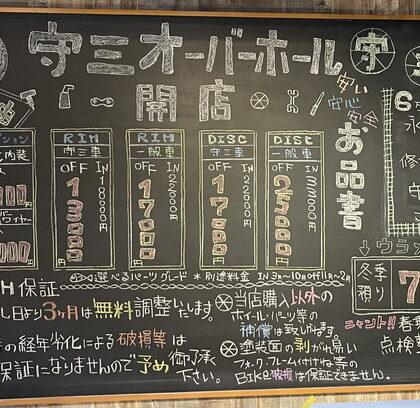 守三オーバーホール
開店
安い
安心
安全
お品書
RIM
守三車
OFF IN
13000円
18000円
RIM
一般車
OFF IN
17000円
22000円
DISC
守三車
OFF IN
17000円
22000円
DISC
一般車
OFF IN
25000円
選べるパーツグレード ※別途料金
H保証
し日より3ヶ月は無料調整いたします。
の経年劣化による破損等は
保証になりませんので予め御了承
下さい。
当店購入以外の
ホイール・パーツ等の
補償は致しかねます
塗装面の剥がれ易い
フォーク・フレーム
Bike破損は保証できません。
ウラ
冬季
預り
ナント!!
点検